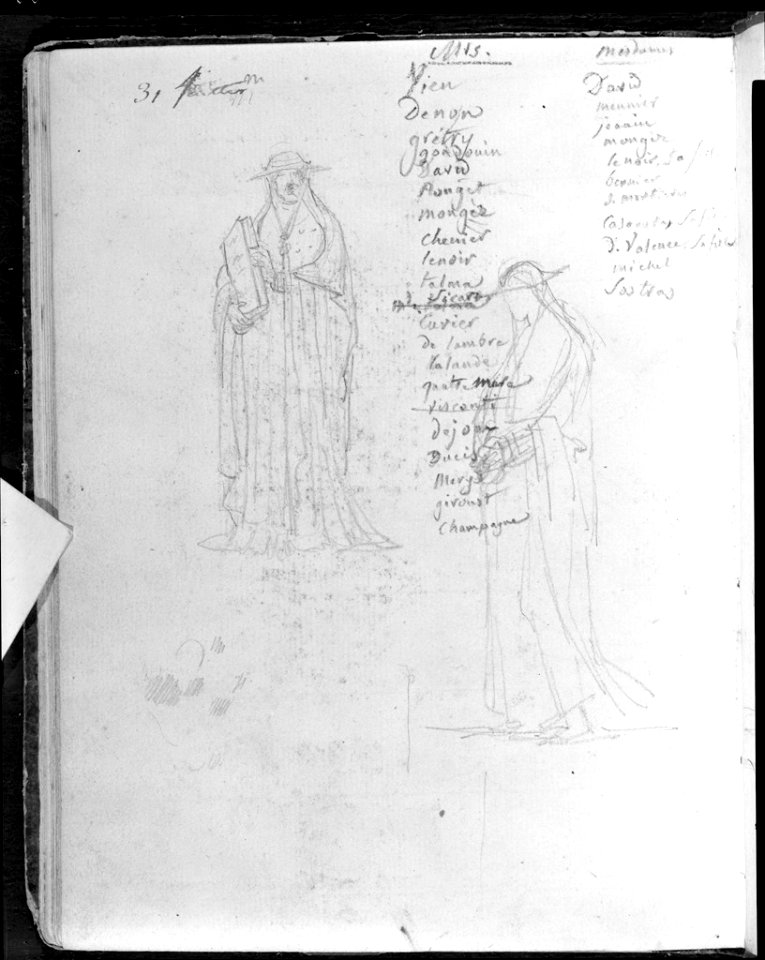 31
Mrs.
Vien
Denon
grétry
gondouin
David
Rouget
mongèz
chenier
lenoir
talma
Sicard
Cuvier
de lambre
lalande
quatremere
visconti
dejoux
Ducis
Merys
giroust
Champagne
Mesdames
David
meunier
mongèz
lenoir, Sa fil
bernier
D. Valence, Sa fille
michel